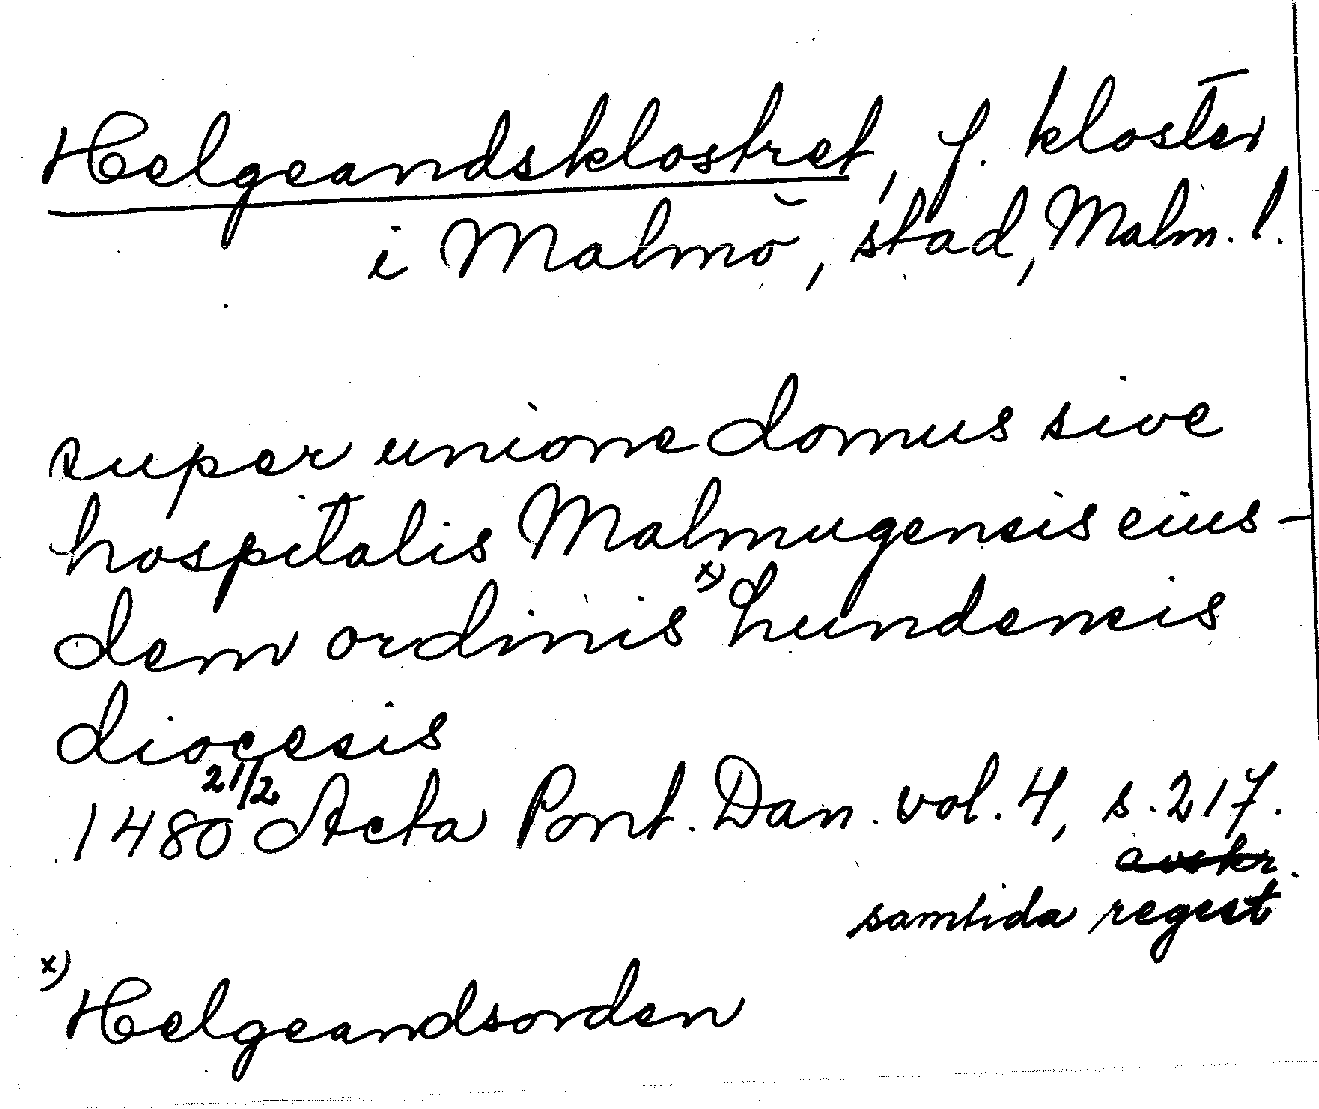 Helgeandsklostret, f. kloster
i Malmö, stad, Malm. l.
super unione domus sive
hospitalis Malmugensis eius-
dem ordinis x) Lundensis
diocesis
1480 21/2 Acta Pont. Dan. vol. 4, s. 217.
avskr.
samtida regest
x) Helgeandsorden